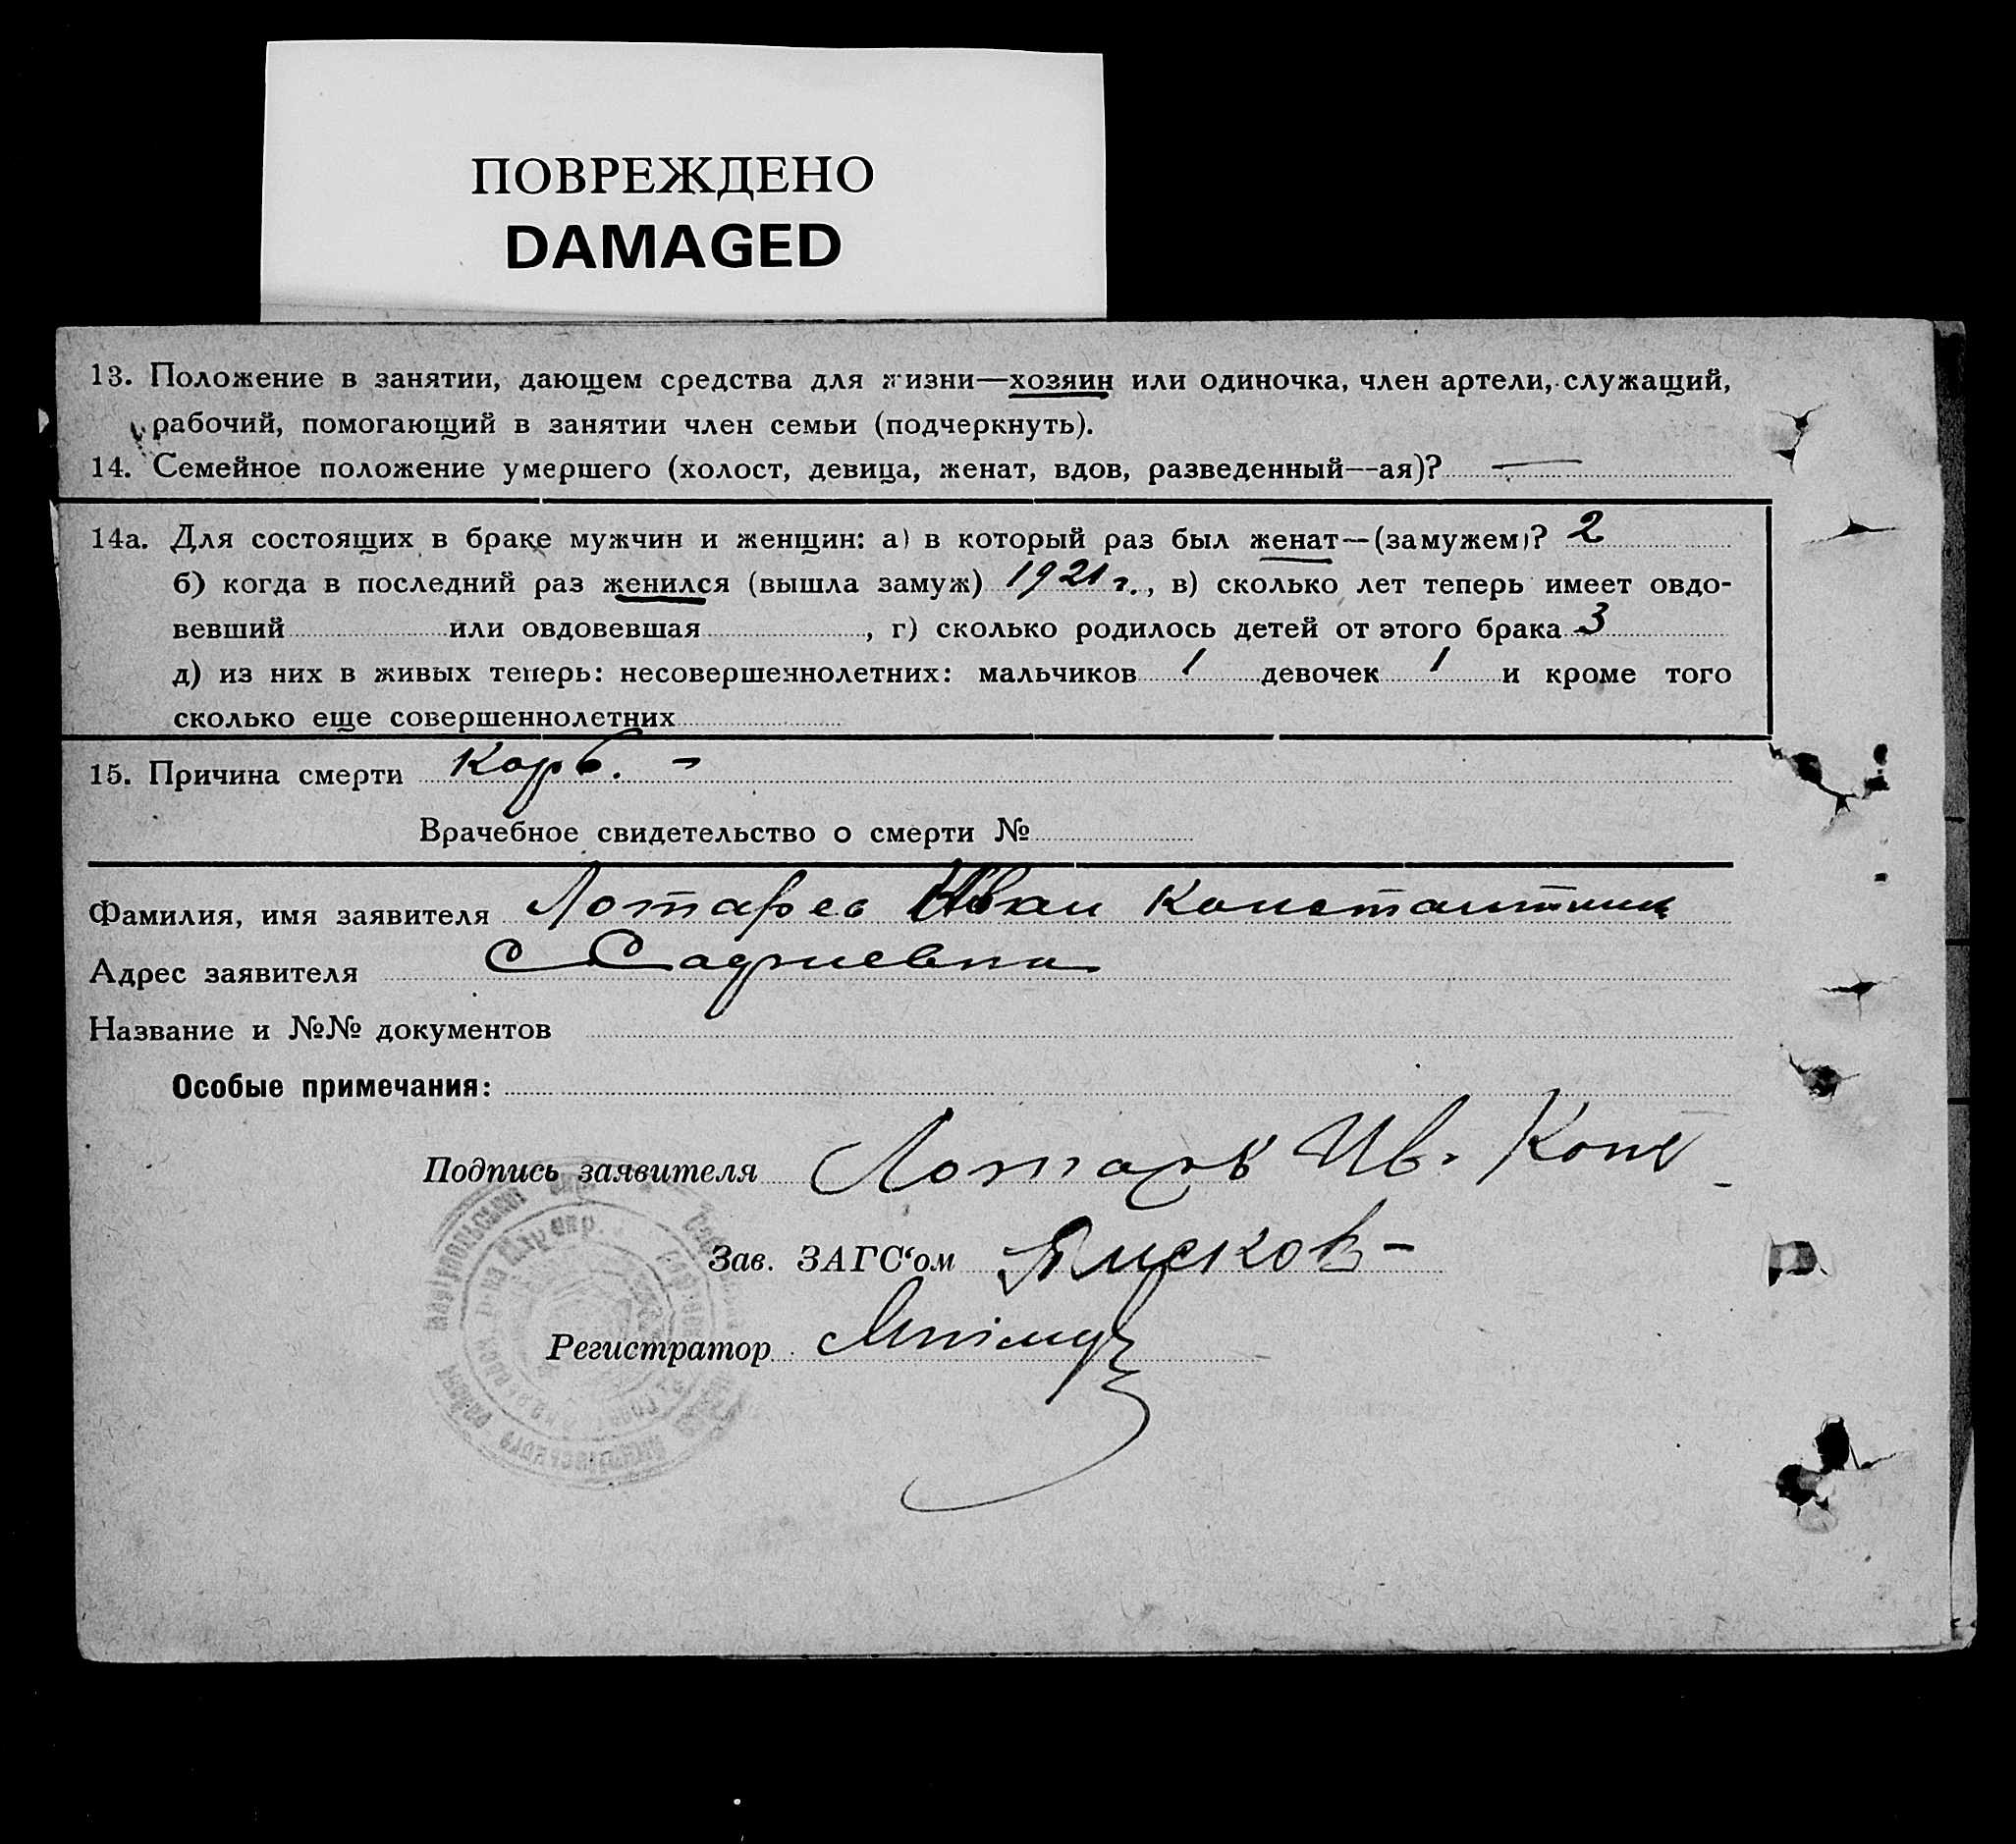 ПОВРЕЖДЕНО
DAMAGED
13. Положение в занятии, дающем средства для жизни—хозяин или одиночка, член артели, служащий,
рабочий, помогающий в занятии член семьи (подчеркнуть).
14. Семейное положение умершего (холост, девица, женат, вдов, разведенный—ая)? —
14а. Для состоящих в браке мужчин и женщин: а) в который раз был женат—(замужем)? 2
б) когда в последний раз женился (вышла замуж) 1921 г., в) сколько лет теперь имеет овдо-
вевший или овдовевшая , г) сколько родилось детей от этого брака 3
д) из них в живых теперь: несовершеннолетних: мальчиков 1 девочек 1 и кроме того
сколько еще совершеннолетних
15. Причина смерти
Врачебное свидетельство о смерти №
Фамилия, имя заявителя Лотарев Иван
Адрес заявителя с
Название и №№ документов
Особые примечания:
Подпись заявителя Ив.
Зав. ЗАГС‘ом
Регистратор